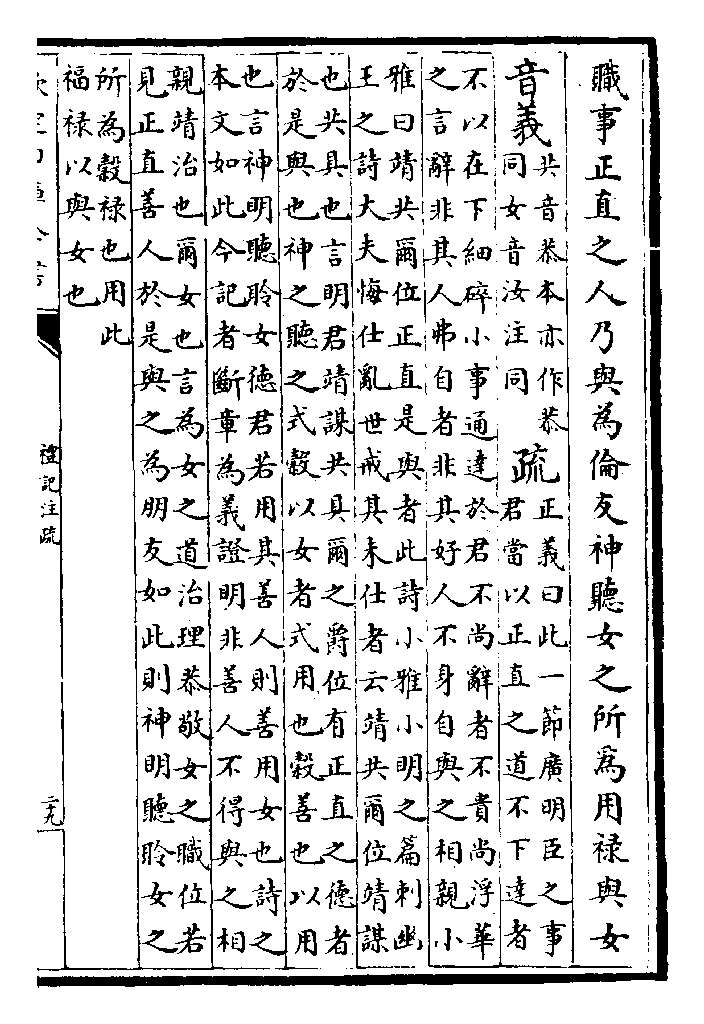 職事正直之人乃與為倫友神聽女之所為用祿與女
音義
共音恭本亦作恭
同女音汝注同
疏
正義曰此一節廣明臣之事
君當以正直之道不下達者
不以在下細碎小事通達於君不尚辭者不貴尚浮華
之言辭非其人弗自者非其好人不身自與之相親小
雅曰靖共爾位正直是與者此詩小雅小明之篇刺幽
王之詩大夫悔仕亂世戒其未仕者云靖共爾位靖謀
也共具也言明君靖謀共具爾之爵位有正直之德者
於是與也神之聽之式穀以女者式用也穀善也以用
也言神明聽聆女德君若用其善人則善用女也詩之
本文如此今記者斷章為義證明非善人不得與之相
親靖治也爾女也言為女之道治理恭敬女之職位若
見正直善人於是與之為朋友如此則神明聽聆女之
所為穀祿也用此
福祿以與女也
欽定四庫全書
禮記注疏
二十九